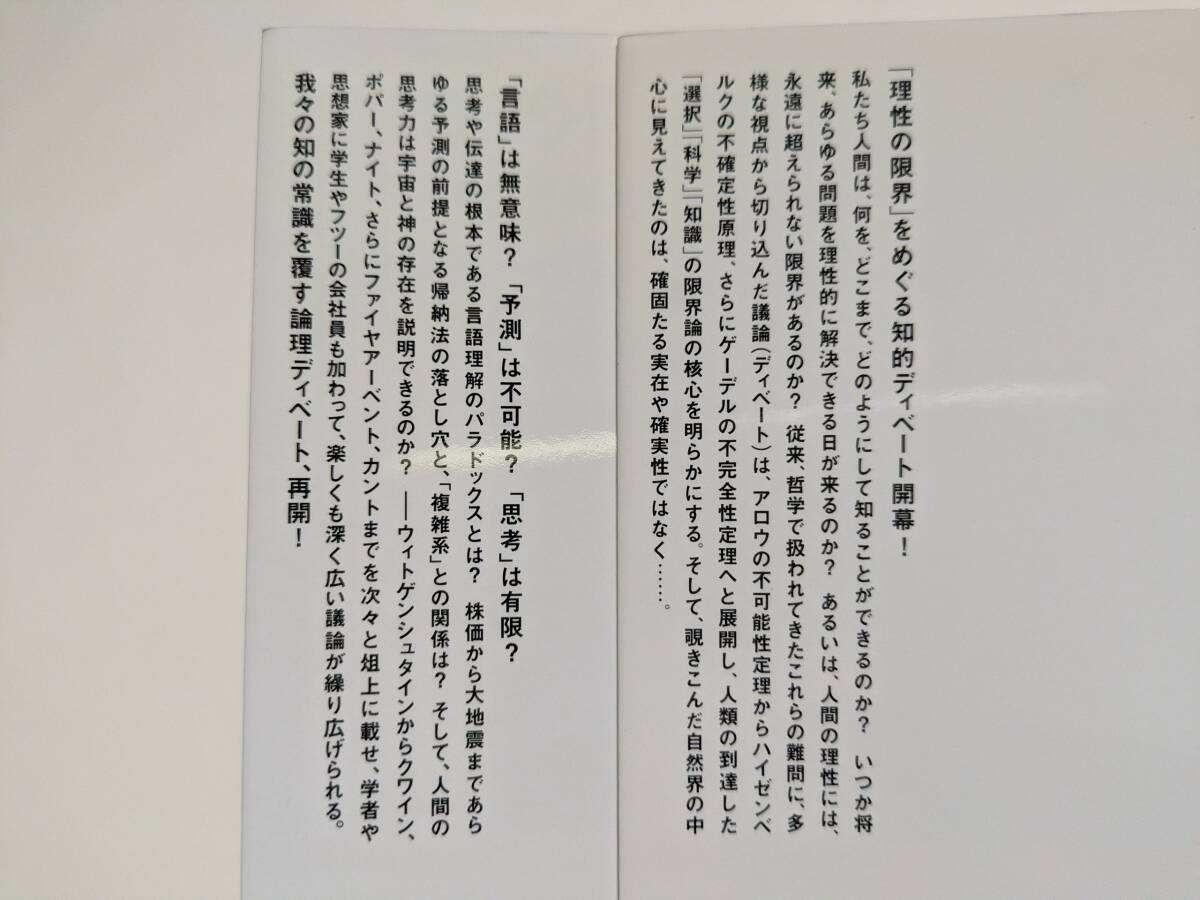 「理性の限界」をめぐる知的ディベート開幕！
私たち人間は、何を、どこまで、どのようにして知ることができるのか？　いつか将
来、あらゆる問題を理性的に解決できる日が来るのか？　あるいは、人間の理性には、
永遠に超えられない限界があるのか？　従来、哲学で扱われてきたこれらの難問に、多
様な視点から切り込んだ議論（ディベート）は、アロウの不可能性定理からハイゼンベ
ルクの不確定性原理、さらにゲーデルの不完全性定理へと展開し、人類の到達した
「選択」「科学」「知識」の限界論の核心を明らかにする。そして、覗きこんだ自然界の中
心に見えてきたのは、確固たる実在や確実性ではなく……。
「言語」は無意味？「予測」は不可能？「思考」は有限？
思考や伝達の根本である言語理解のパラドックスとは？　株価から大地震まであら
ゆる予測の前提となる帰納法の落とし穴と、「複雑系」との関係は？　そして、人間の
思考力は宇宙と神の存在を説明できるのか？　――ウィトゲンシュタインからクワイン、
ポパー、ナイト、さらにファイヤアーベント、カントまでを次々と俎上に載せ、学者や
思想家に学生やフツーの会社員も加わって、楽しくも深く広い議論が繰り広げられる。
我々の知の常識を覆す論理ディベート、再開！